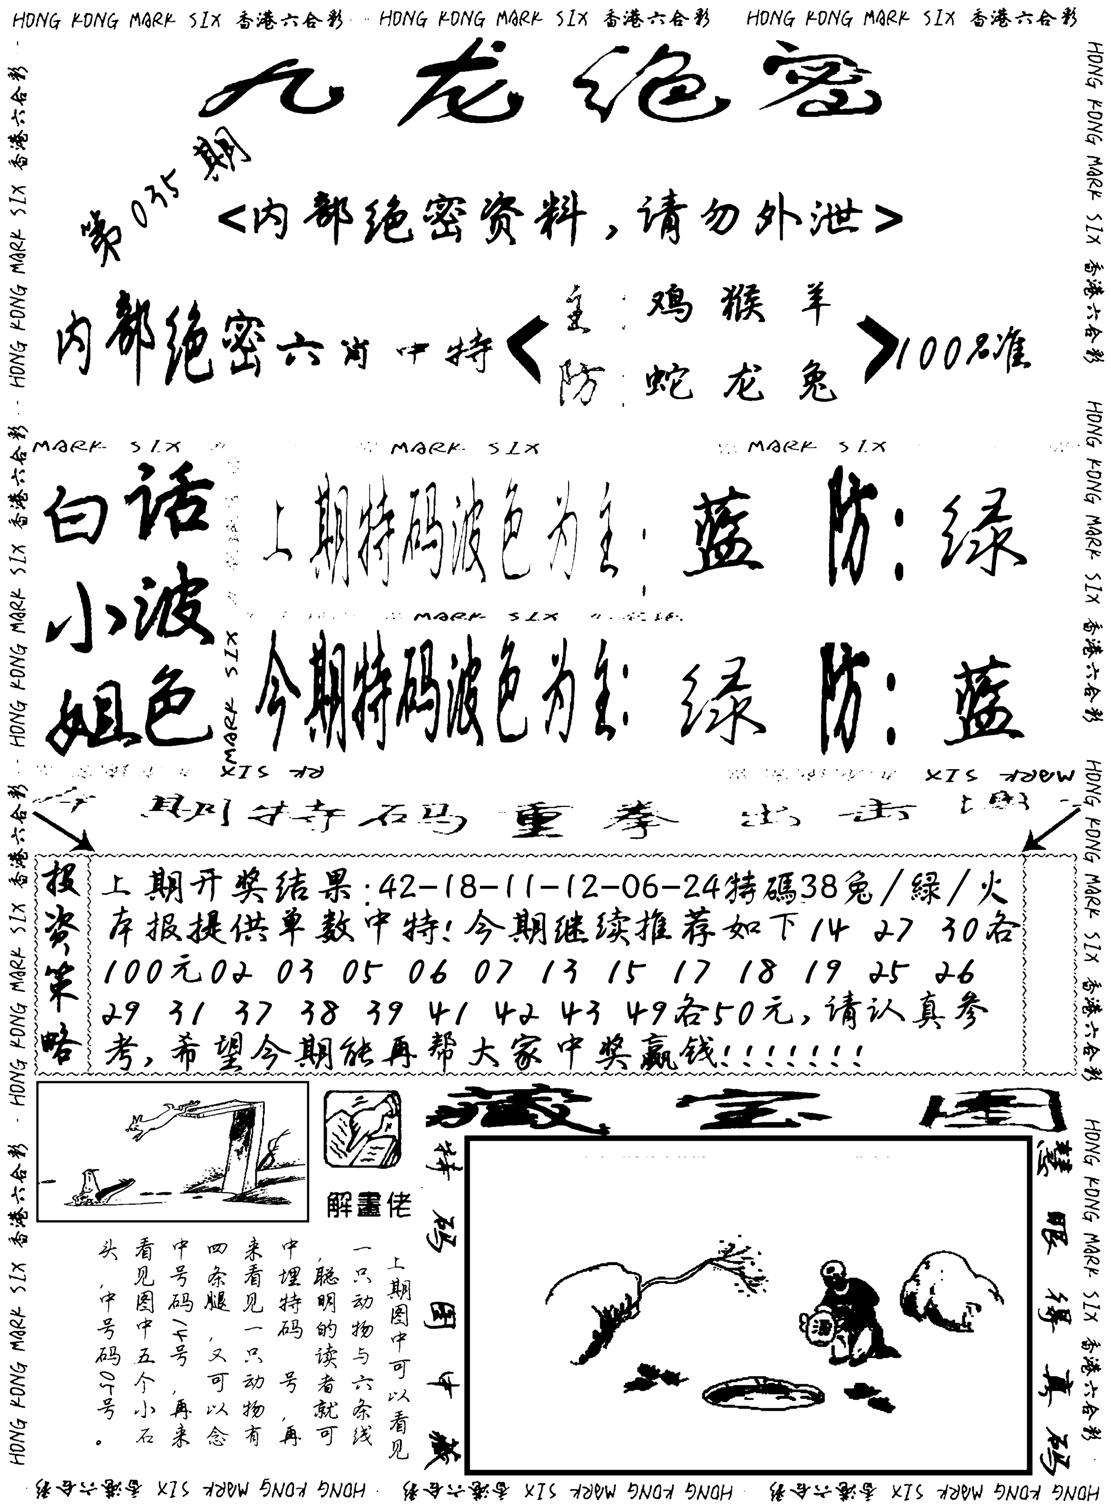 HONG KONG MARK SIX 香港六合彩 HONG KONG MARK SIX 香港六合彩 HONG KONG MARK SIX 香港六合彩
九龙绝密
第035期
<内部绝密资料，请勿外泄>
内部绝密六肖中特
主：鸡 猴 羊
防：蛇 龙 兔
100%准
MARK SIX MARK SIX MARK SIX
白话
小波
姐色
上期特码波色为主：蓝 防：绿
MARK SIX
今期特码波色为主：绿 防：蓝
MARK SIX
今期特码重拳出击
投资策略
上期开奖结果:42-18-11-12-06-24特碼38兔/緑/火
本报提供单数中特!今期继续推荐如下14 27 30各
100元02 03 05 06 07 13 15 17 18 19 25 26
29 31 37 38 39 41 42 43 49各50元,请认真参
考,希望今期能再帮大家中奖赢钱!!!!!!!
解畫佬
上期图中可以看见
一只动物与六条线
,聪明的读者就可
中埋特码 号,再
来看见一只动物有
四条腿,又可以念
中号码14号,再来
看见图中五个小石
头,中号码 号。
藏宝图
特码图中藏
慧眼得真码
HONG KONG MARK SIX 香港六合彩 HONG KONG MARK SIX 香港六合彩 HONG KONG MARK SIX 香港六合彩